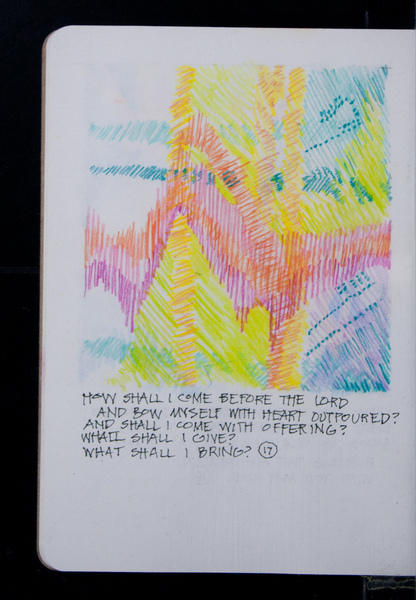 HOW SHALL I COME BEFORE THE LORD
AND BOW MYSELF WITH HEART OUTPOURED?
AND SHALL I COME WITH OFFERING?
WHAT SHALL I GIVE?
WHAT SHALL I BRING? 17